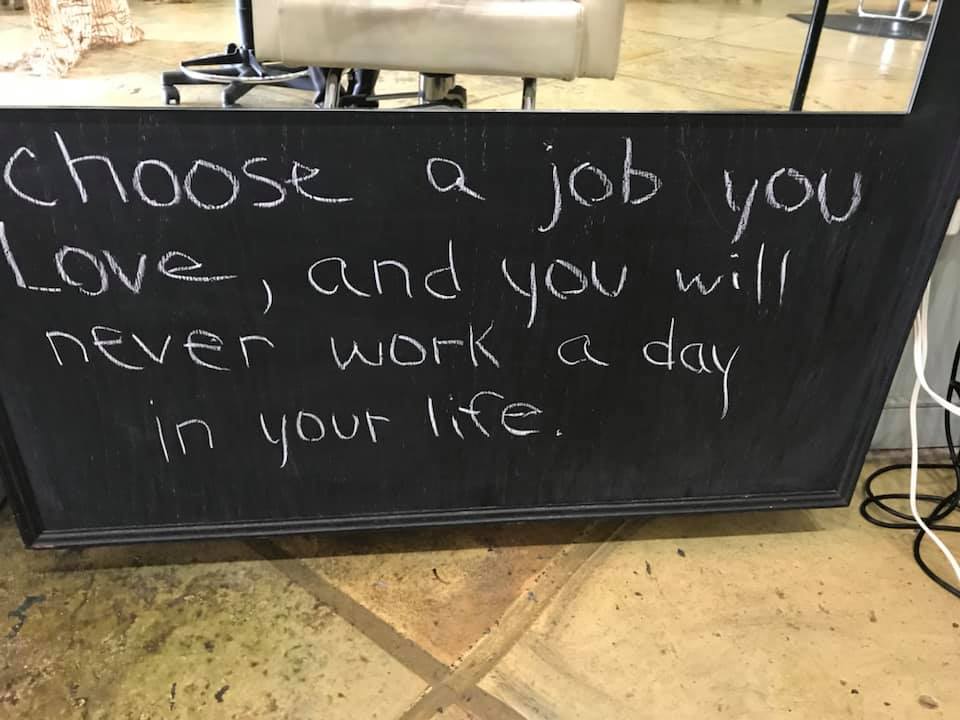 choose a job you
Love, and you will
never work a day
in your life.